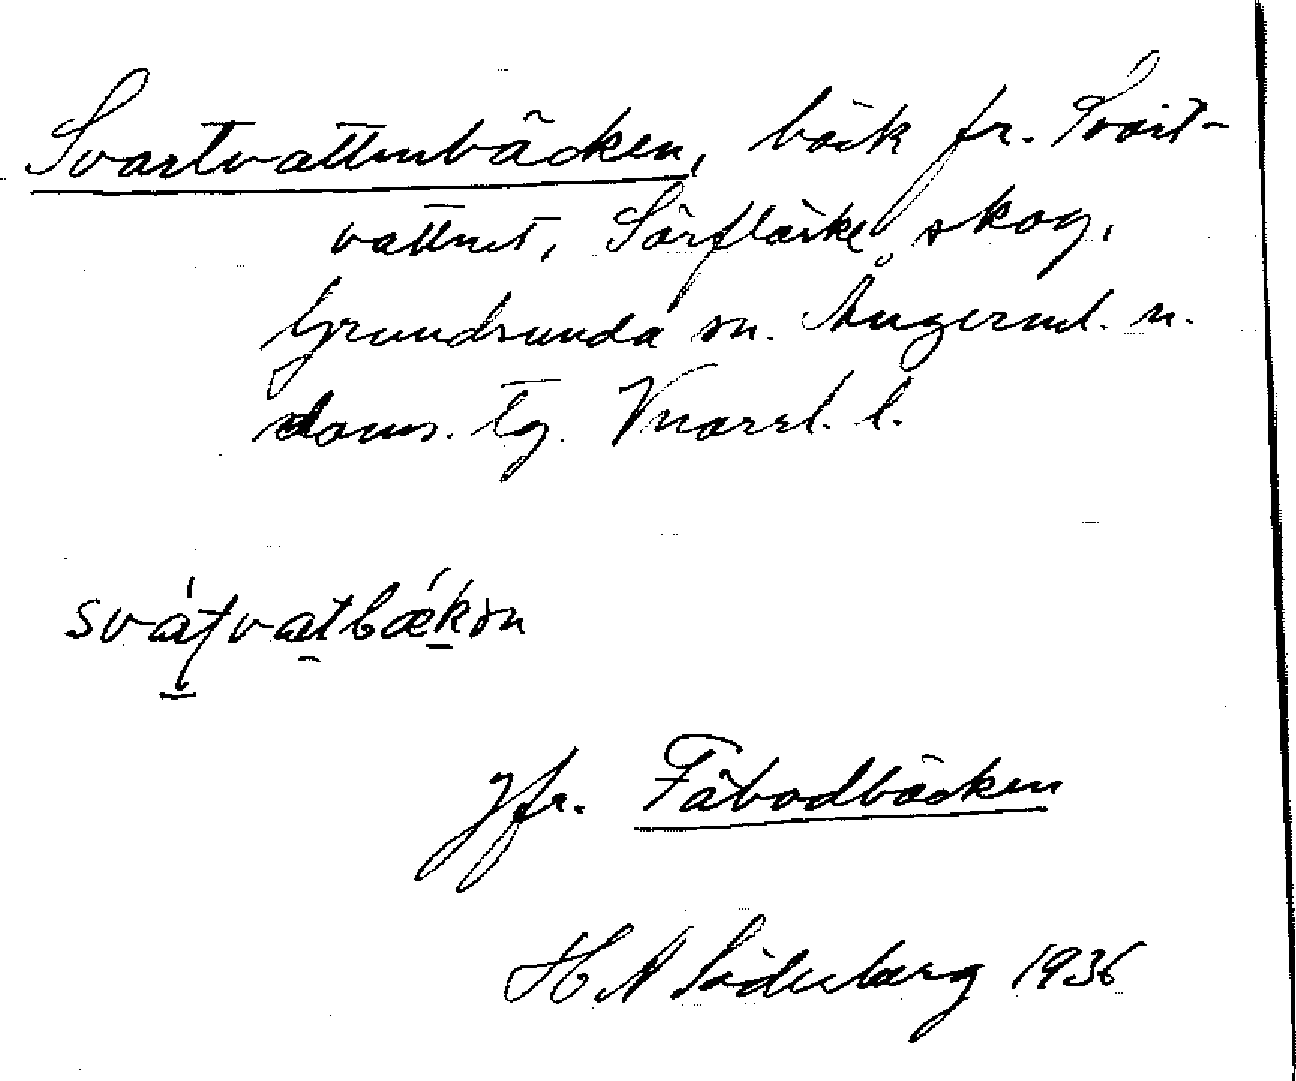 Svartvattenbäcken, bäck fr. Svart-
vattnet, Sörflärke skog,
Grundsunda sn. Ångerml. n.
doms. tg. Vnorrl. l.
jfr. Fäbodbäcken
H A Söderberg 1936